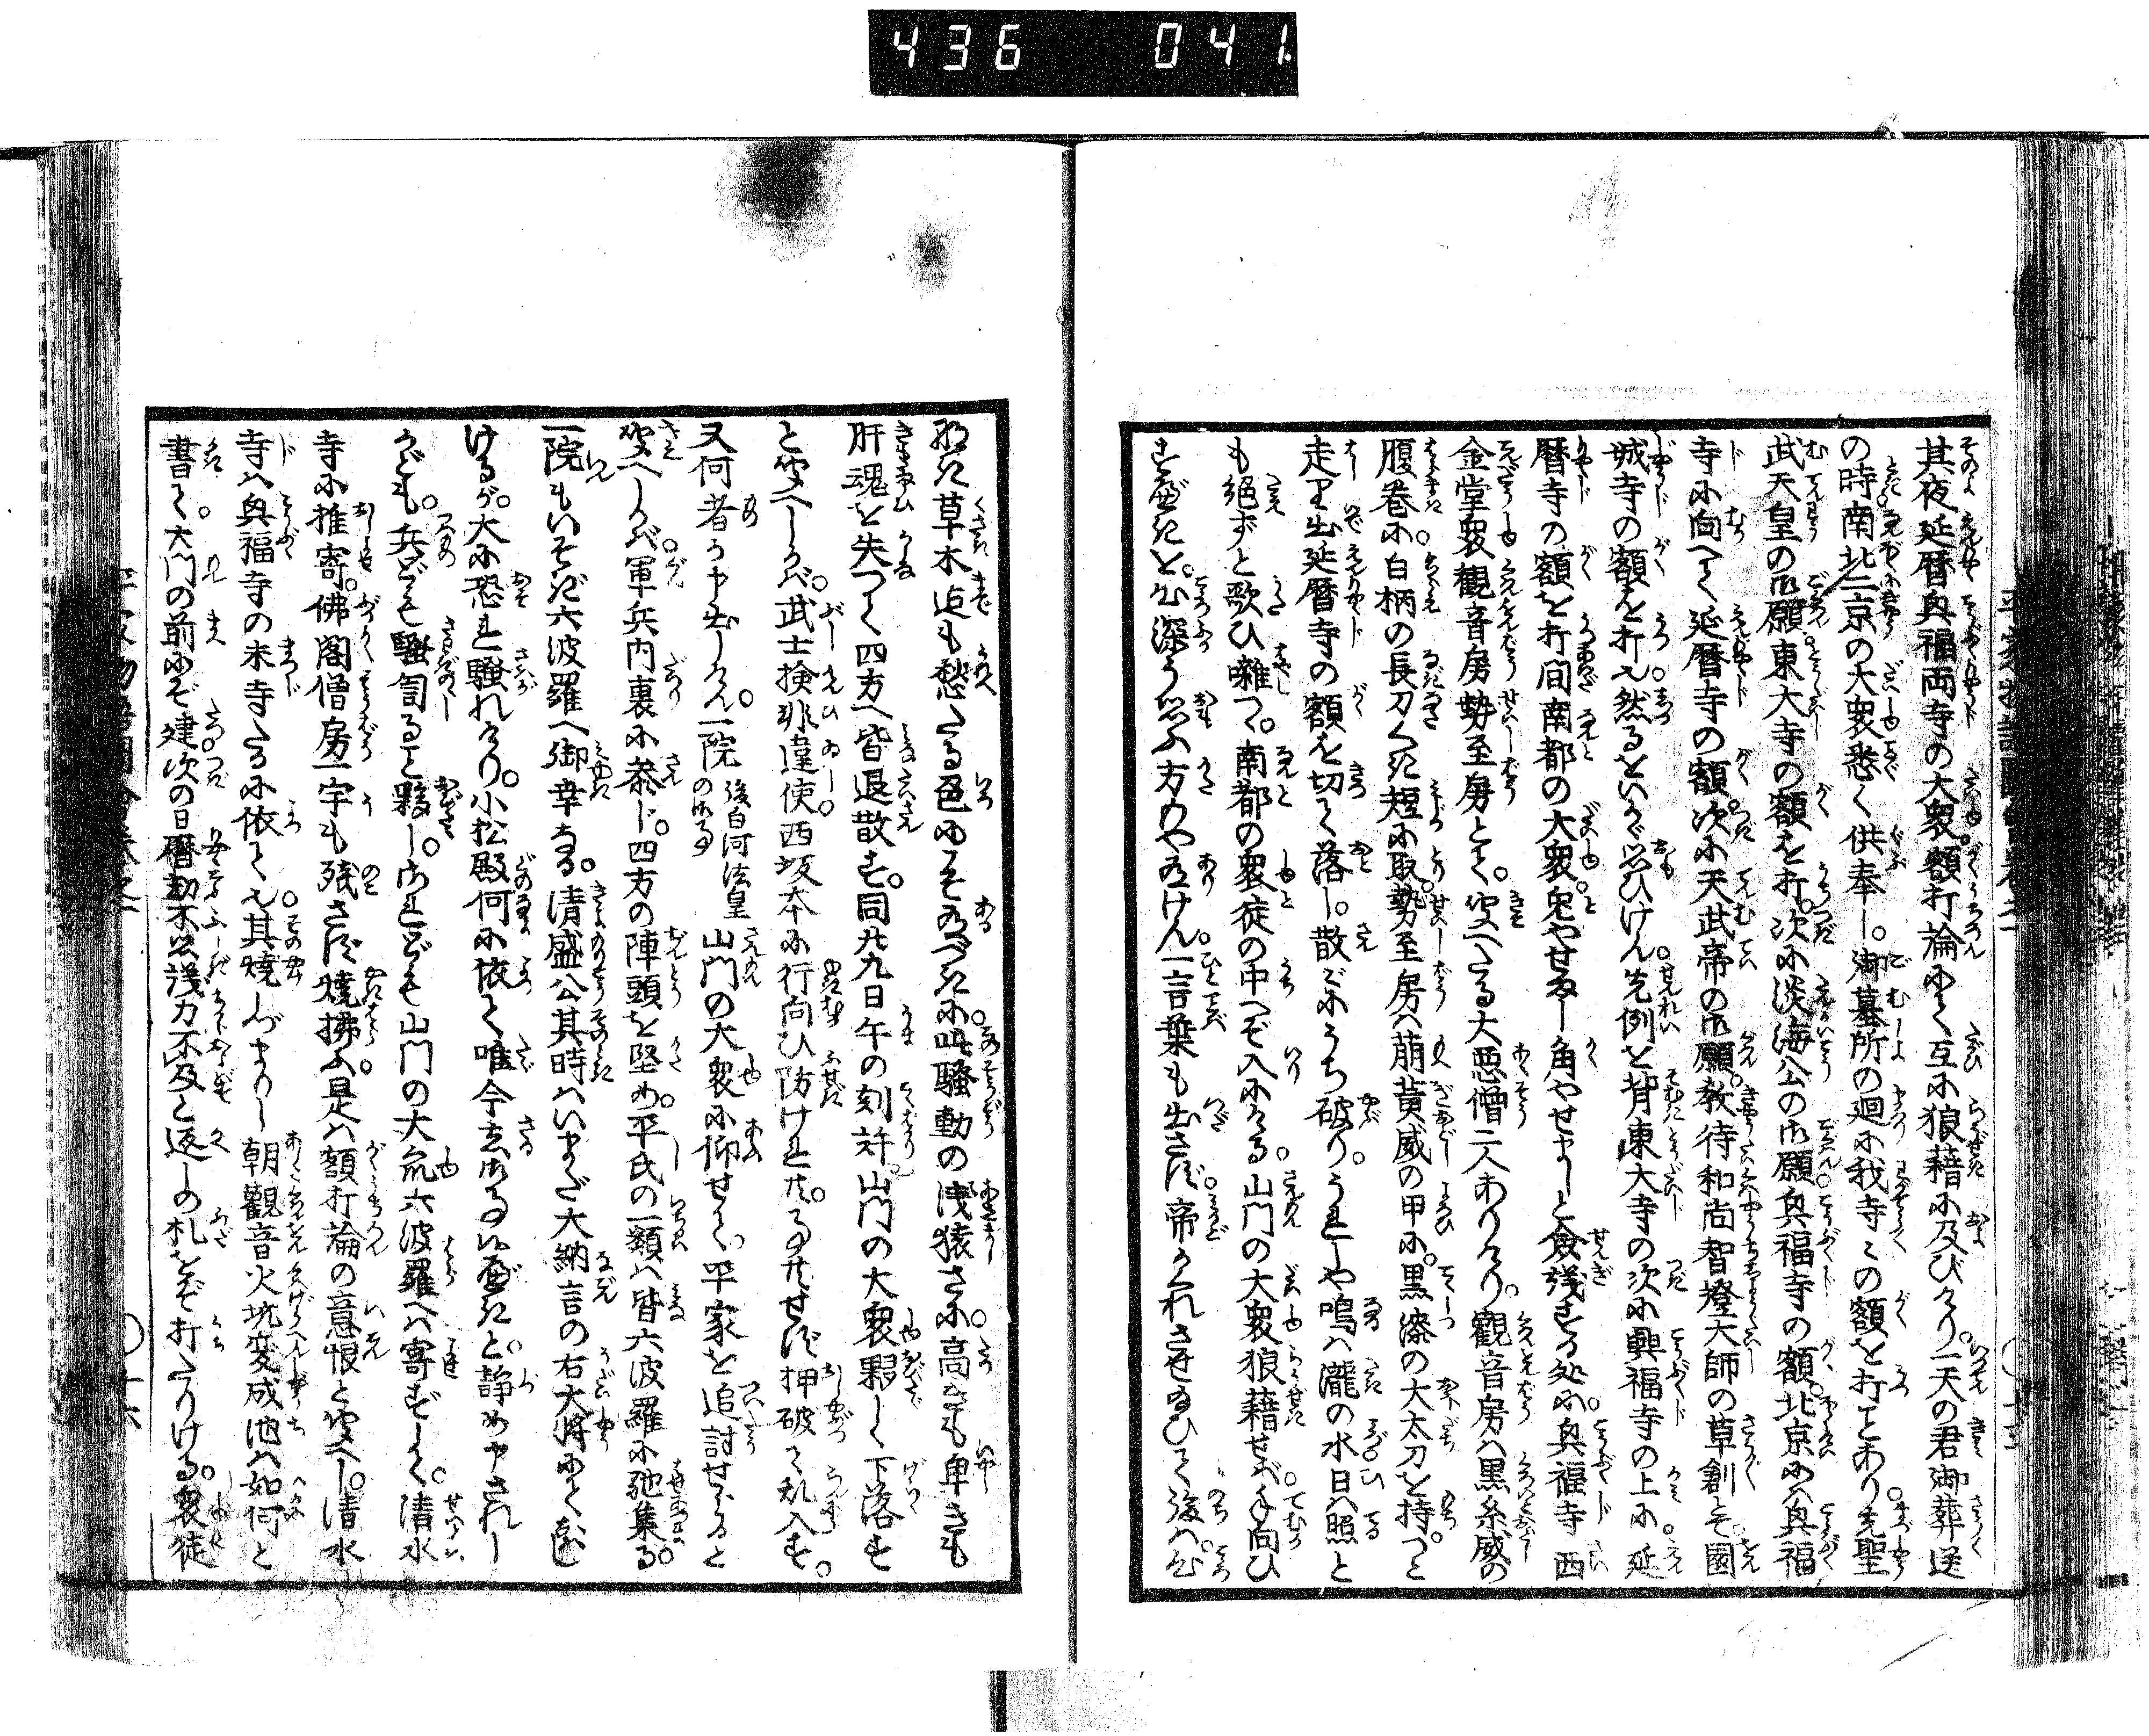 436 041
其夜延暦興福両寺の大衆額打論にて互に狼藉に及びけり。一天の君御葬送
の時南北二京の大衆悉く供奉し。御墓所の廻に我寺々の額を打ことあり。先聖
武天皇の御願。東大寺の額を打。次に淡海公の御願興福寺の額。北京には興福
寺に向へて延暦寺の額。次に天武帝の御願。教待和尚智證大師の草創とぞ園
城寺の額を打。然るをいかゞ思ひけん。先例を背東大寺の次に興福寺の上に。延
暦寺の額を打間南都の大衆。兎やせまし角やせましと僉議する処に。興福寺西
金堂衆観音房勢至房とて。聞えたる大悪僧二人ありけり。観音房は黒糸威の
腹巻に。白柄の長刀くき短に取。勢至房は萌黄威の甲に。黒漆の大太刀を持。つと
走り出延暦寺の額を切て落し。散ざにうち破り。うれしや鳴は瀧の水日は照と
も絶ずと歌ひ囃つ。南都の衆徒の中へぞ入にける。山門の大衆狼藉せば。手向ひ
すべきと。心深う思ふ方もや有けん。一言葉も出さず。帝かくれさせ給ひて後は。心
なき草木迄も愁たる色にこそ有べきに。此騒動の浅猿さに。高きも卑きも
肝魂を失つて四方へ皆退散す。同廿九日午の刻許山門の大衆夥しく下落す
と聞へしかば。武士検非違使。西坂本に行向ひ防けれ共。事共せず押破て乱入す。
又何者か申出しけん。一院後白河法皇の御事山門の大衆に仰せて。平家を追討せらると
聞へしかば。軍兵内裏に参じ。四方の陣頭を堅め。平氏の一類は皆六波羅に馳集る。
一院もいそぎ六波羅へ御幸なる。清盛公其時はいまだ大納言の右大将にておはし
けるが。大に恐れ騒れけり。小松殿何に依て唯今さる御事候べきと。静め申されし
かども。兵ども騒訇ること夥し。されども山門の大衆六波羅へは寄ずして。清水
寺に推寄。佛閣僧房一宇も残さず焼拂ふ。是は額打論の意恨と聞へし。清水
寺は興福寺の末寺たるに依てなり。其焼しづまりし朝観音火坑変成池は如何と
書て。大門の前にぞ建。次の日暦劫不思議力不及と返しの札をぞ打たりける。衆徒